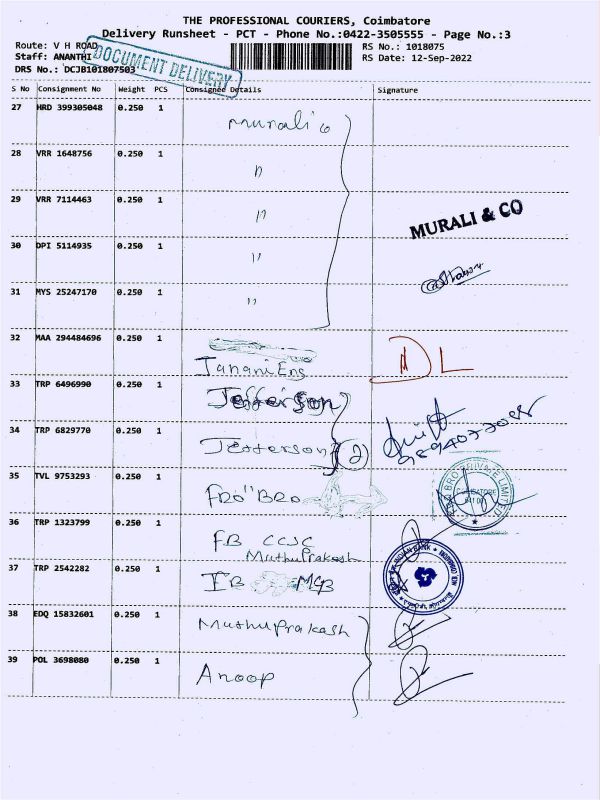 THE PROFESSIONAL COURIERS, Coimbatore
Delivery Runsheet - PCT - Phone No.:0422-3505555 - Page No.:3
Route: V H ROAD
RS No.: 1018075
Staff: ANANTHI
RS Date: 12-Sep-2022
DRS No.: DCJB101807503
DOCUMENT DELIVERY
S No Consignment No Weight PCS Consignee Details Signature
27 HRD 399305048 0.250 1 Murali &
28 VRR 1648756 0.250 1 "
29 VRR 7114463 0.250 1 "
MURALI & CO
30 DPI 5114935 0.250 1 "
31 MYS 25247170 0.250 1 "
32 MAA 294484696 0.250 1
Janani Eng DL
33 TRP 6496990 0.250 1 Jefferson
34 TRP 6829770 0.250 1 Jefferson (2)
35 TVL 9753293 0.250 1 FRO"BRO
BRO PRIVATE LIMITED
36 TRP 1323799 0.250 1 FB
Muthuprakash
37 TRP 2542282 0.250 1 IB MGB
INDIAN BANK
38 EDQ 15832601 0.250 1 Muthuprakash
39 POL 3698080 0.250 1 Anoop